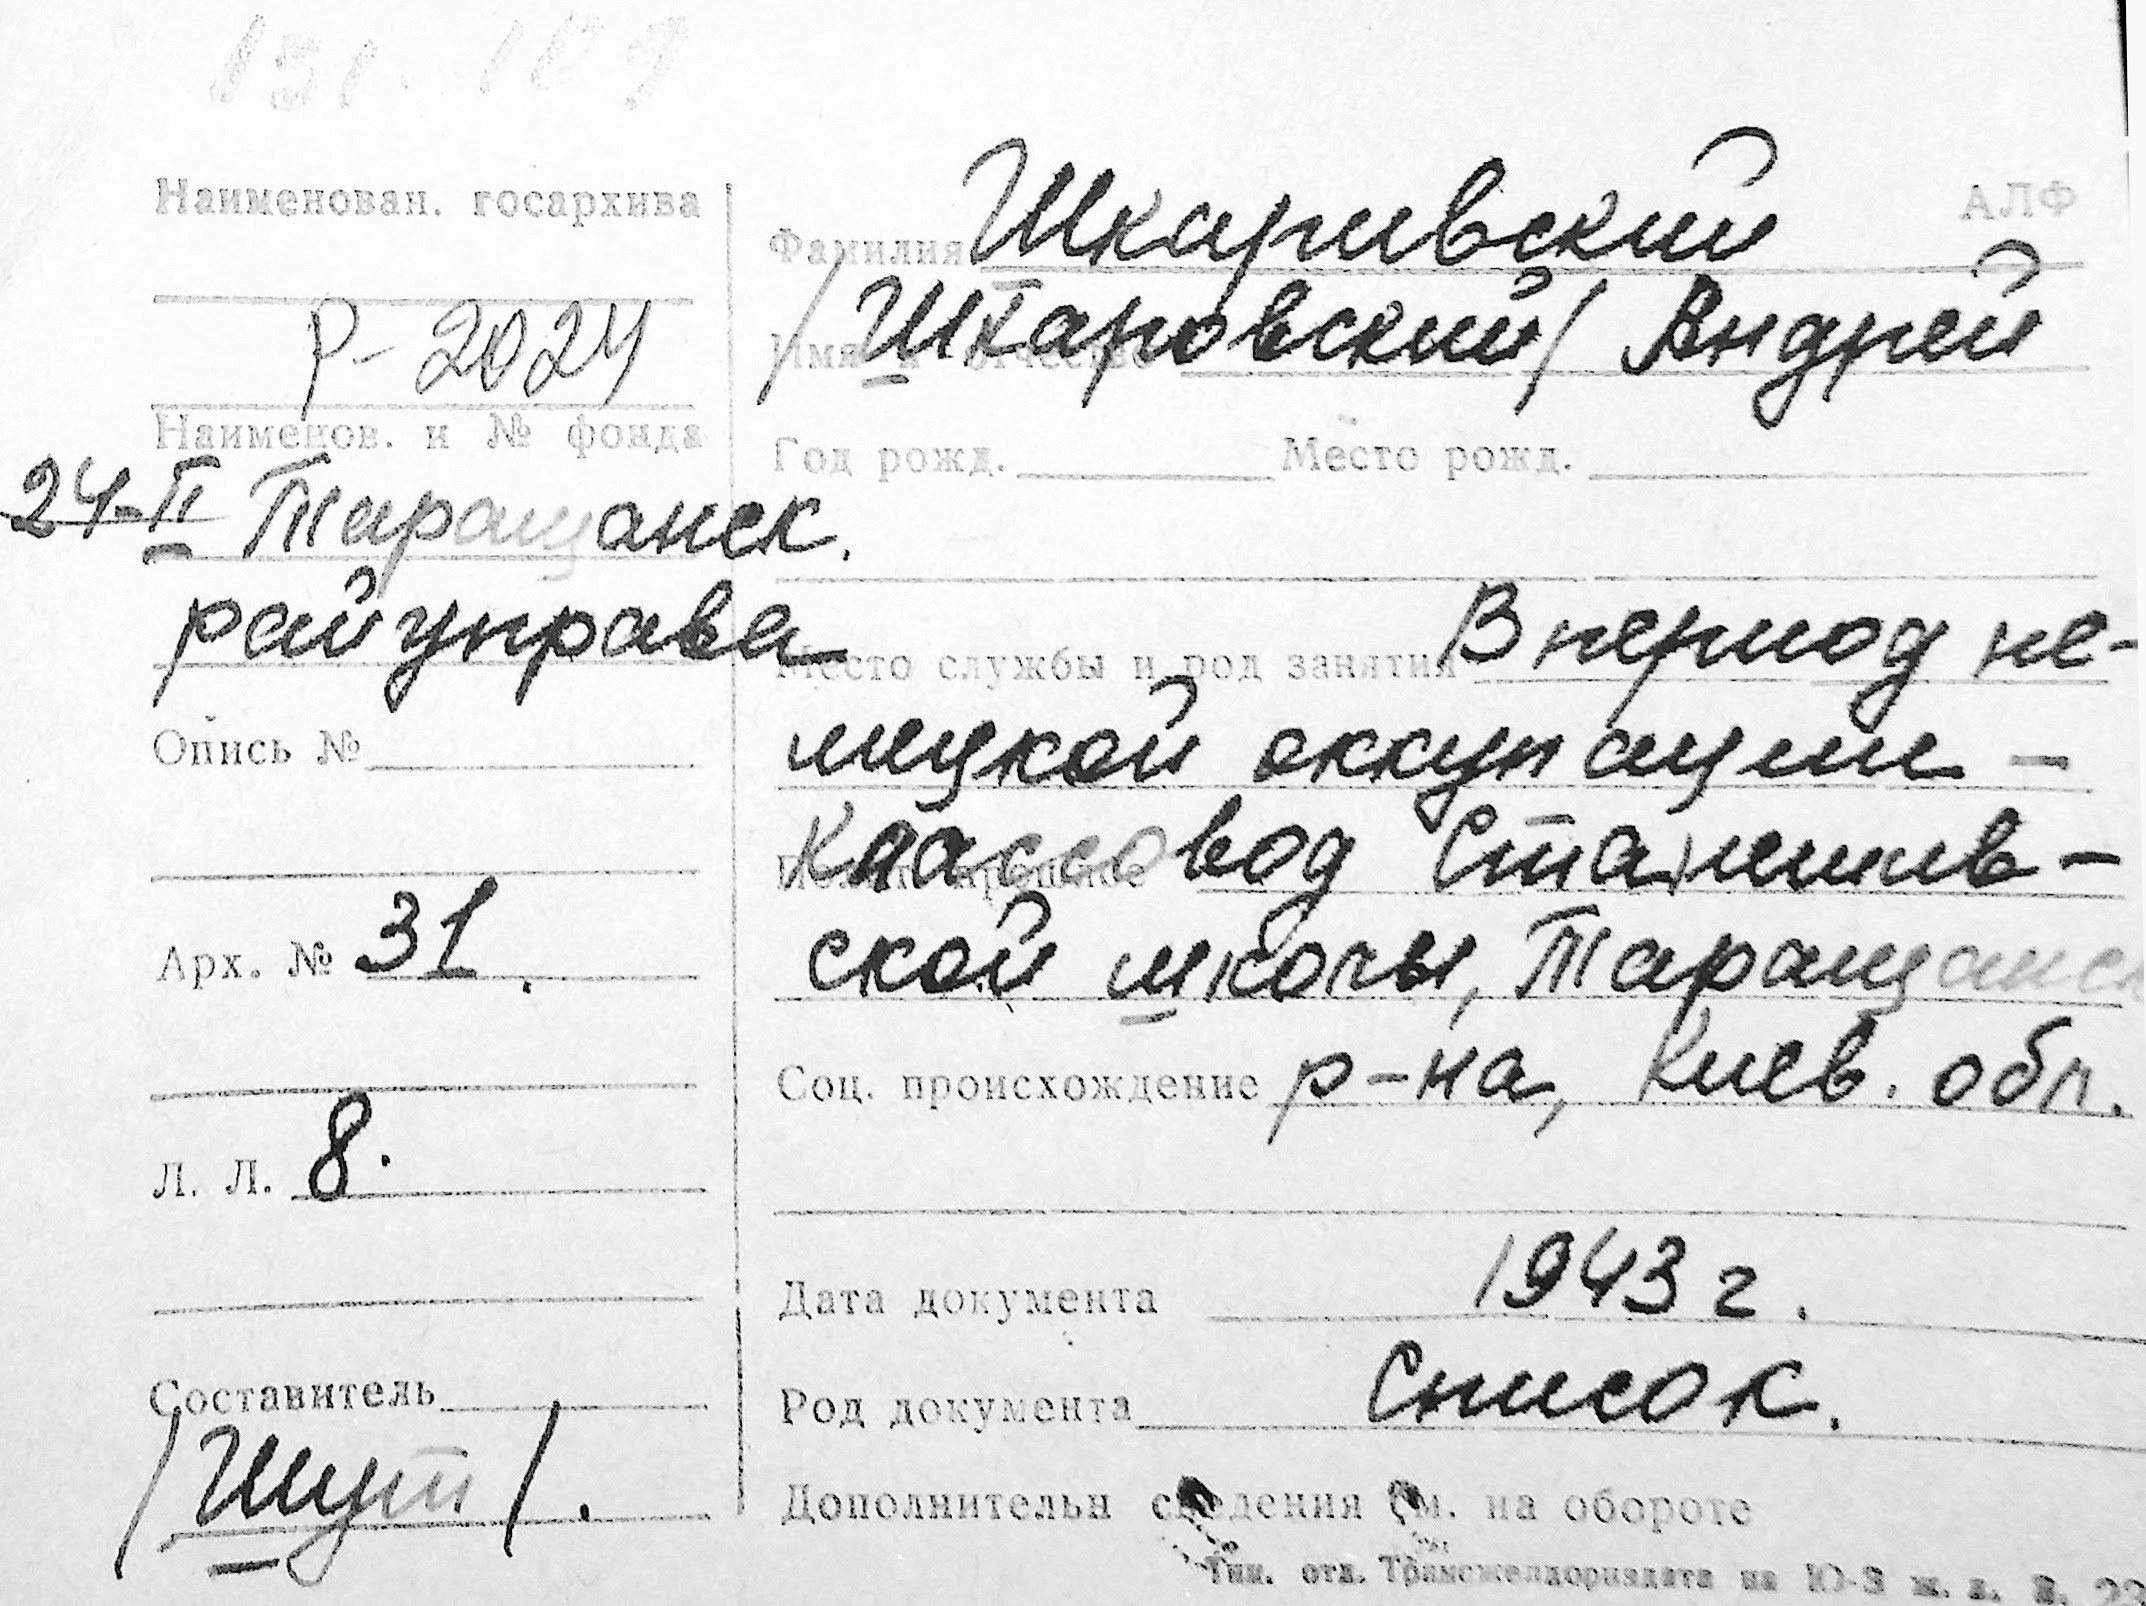 151 - 189
Наименован. госархива
Р-2024
Наименов. и № фонда
24-II Таращанск.
райуправа
Опись №
Арх. № 31.
Л. Л. 8.
Составитель
/Шут/.
АЛФ
Фамилия Шкаривский
Имя и отчество /Шкаровский/ Андрей
Год рожд. Место рожд.
Место службы и род занятия В период не-
мецкой оккупации -
классовод Станишив-
ской школы, Таращанск
Соц. происхождение р-на, Киев. обл.
Дата документа 1943 г.
Род документа Список.
Дополнительн сведения см. на обороте
Тип. отд. Трансжелдориздата на Ю-З ж. д. З. 23